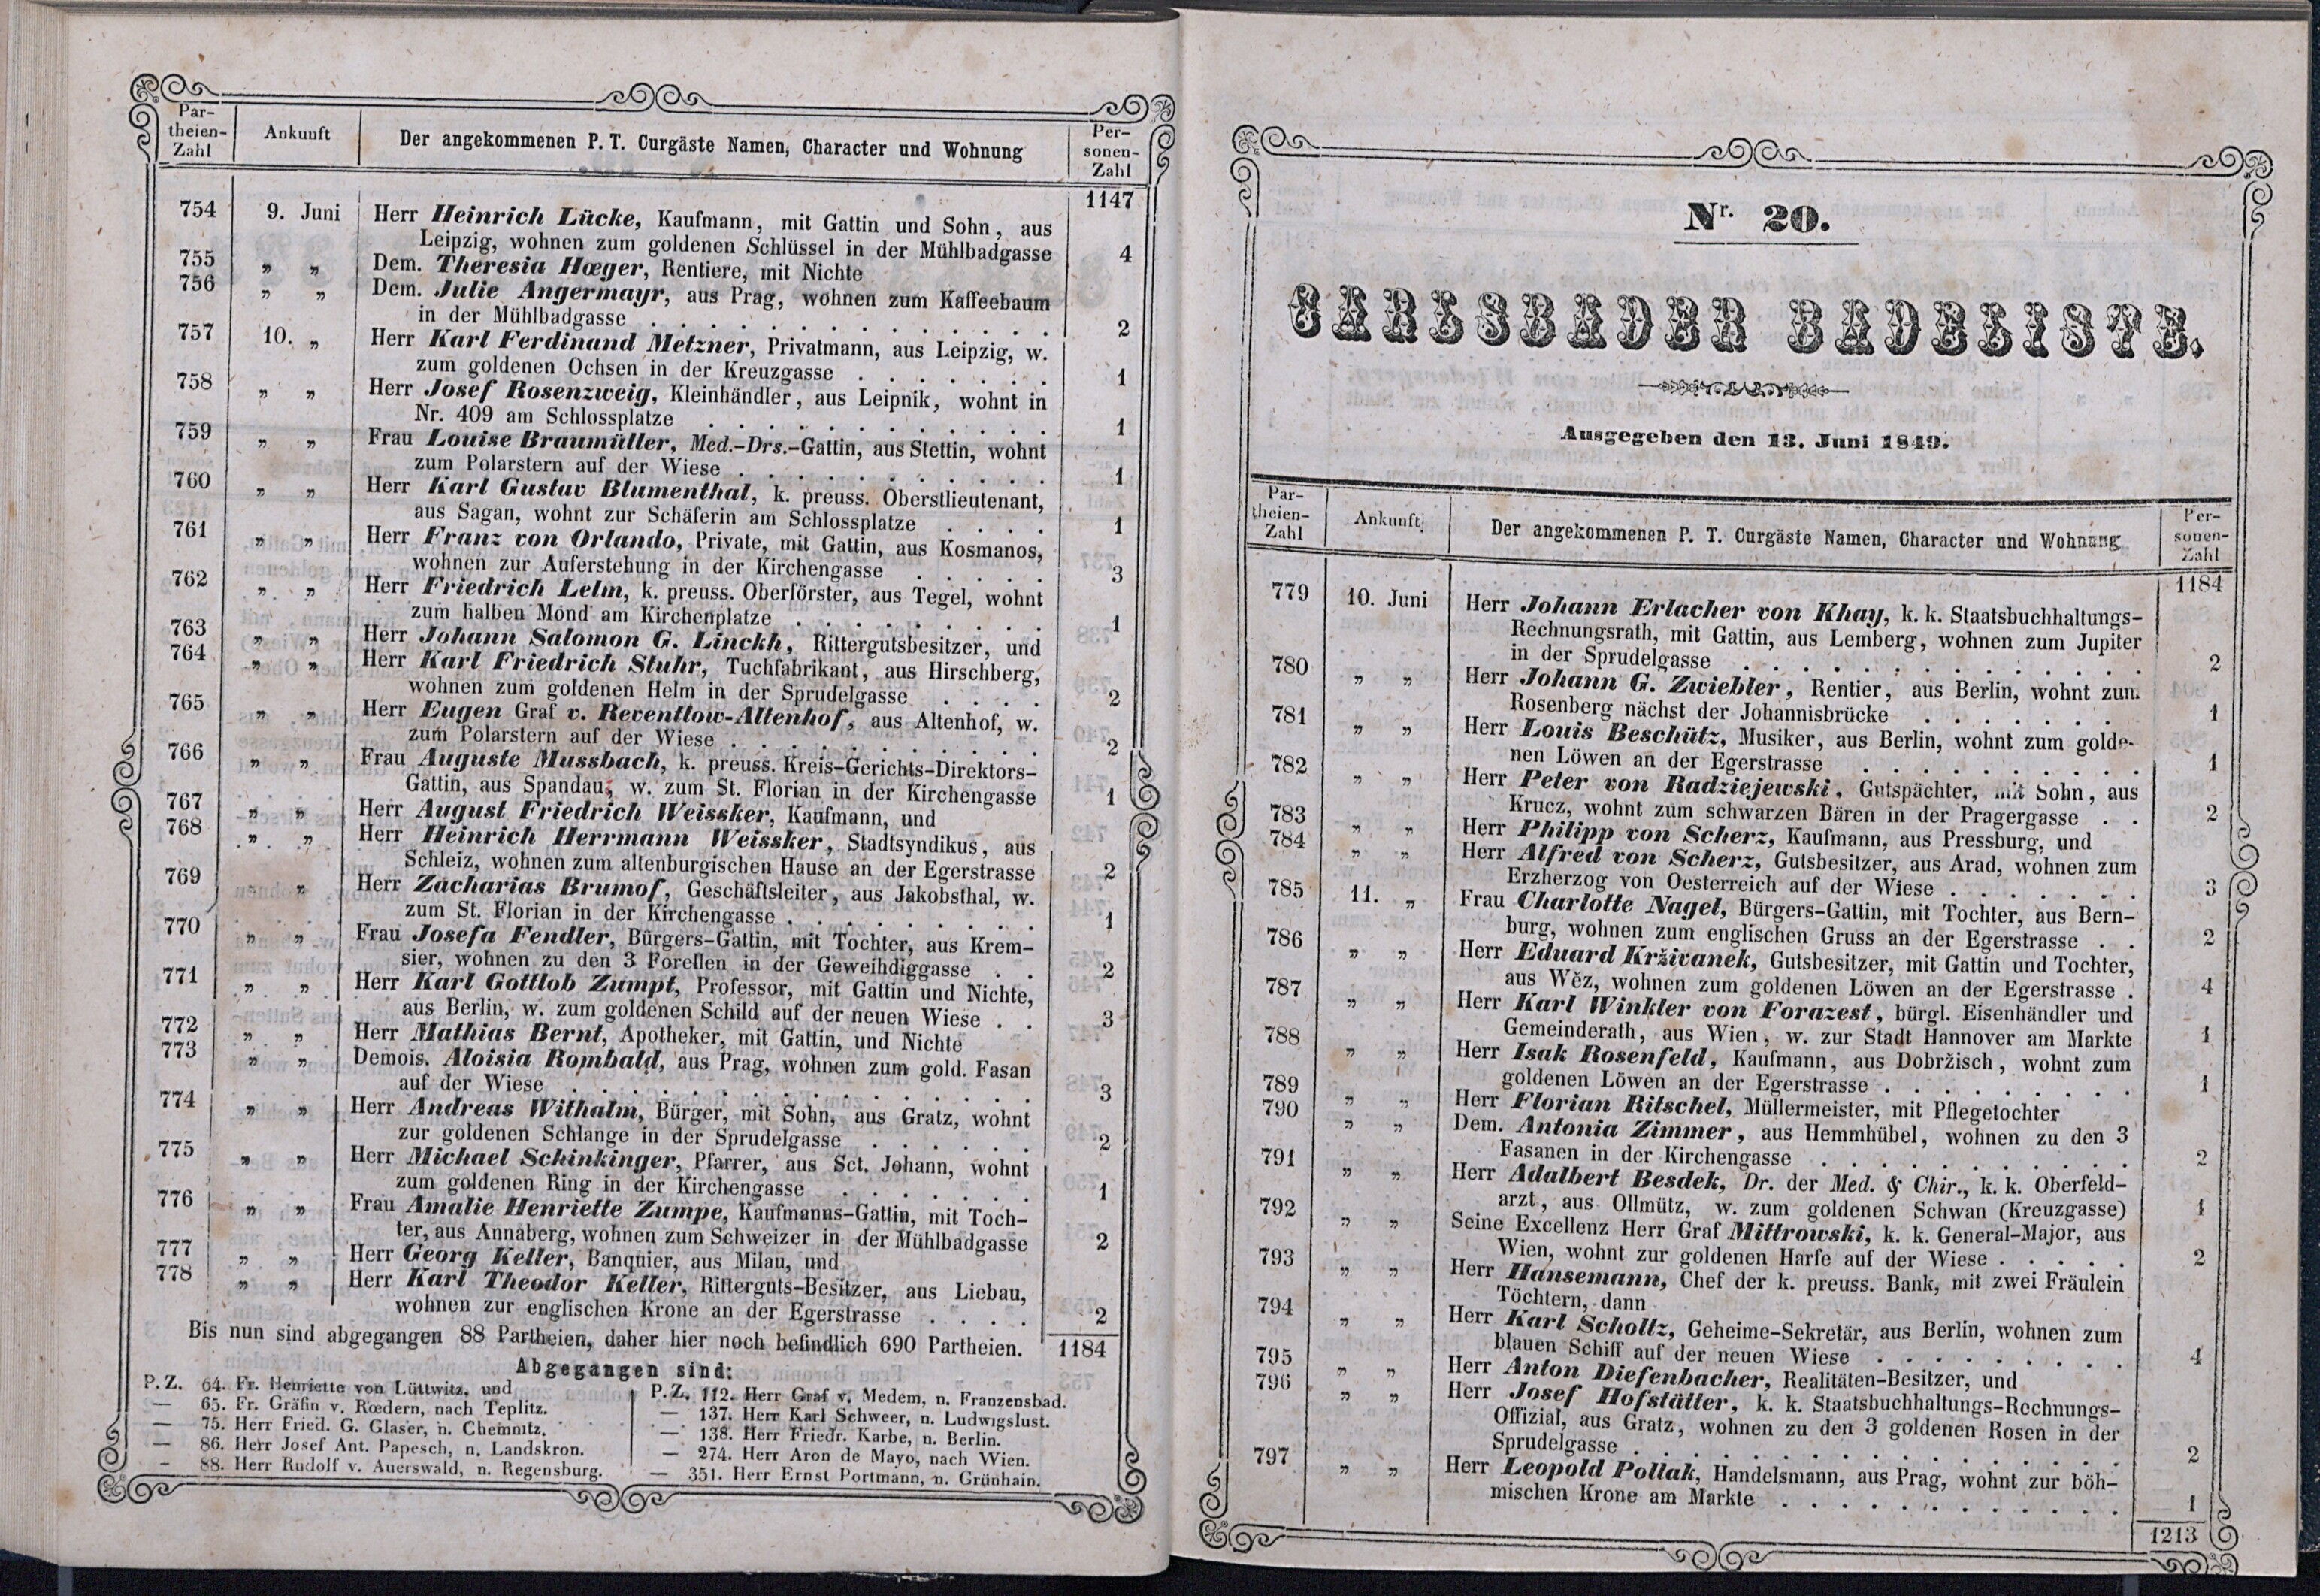 Par-
theien-
Zahl
Ankunft
Der angekommenen P. T. Curgäste Namen, Character und Wohnung
Per-
sonen-
Zahl
1147
754 9. Juni Herr Heinrich Lücke, Kaufmann, mit Gattin und Sohn, aus
Leipzig, wohnen zum goldenen Schlüssel in der Mühlbadgasse 4
755 „ „ Dem. Theresia Hœger, Rentiere, mit Nichte
756 „ „ Dem. Julie Angermayr, aus Prag, wohnen zum Kaffeebaum
in der Mühlbadgasse . . . . . . . . . . . . . . 2
757 10. „ Herr Karl Ferdinand Metzner, Privatmann, aus Leipzig, w.
zum goldenen Ochsen in der Kreuzgasse . . . . . . . 1
758 „ „ Herr Josef Rosenzweig, Kleinhändler, aus Leipnik, wohnt in
Nr. 409 am Schlossplatze . . . . . . . . . . . . 1
759 „ „ Frau Louise Braumüller, Med.-Drs.-Gattin, aus Stettin, wohnt
zum Polarstern auf der Wiese . . . . . . . . . . . 1
760 „ „ Herr Karl Gustav Blumenthal, k. preuss. Oberstlieutenant,
aus Sagan, wohnt zur Schäferin am Schlossplatze . . . . 1
761 „ „ Herr Franz von Orlando, Private, mit Gattin, aus Kosmanos,
wohnen zur Auferstehung in der Kirchengasse . . . . . 3
762 „ „ Herr Friedrich Lelm, k. preuss. Oberförster, aus Tegel, wohnt
zum halben Mond am Kirchenplatze . . . . . . . . . 1
763 „ „ Herr Johann Salomon G. Linckh, Rittergutsbesitzer, und
764 „ „ Herr Karl Friedrich Stuhr, Tuchfabrikant, aus Hirschberg,
wohnen zum goldenen Helm in der Sprudelgasse . . . . 2
765 „ „ Herr Eugen Graf v. Reventlow-Altenhof, aus Altenhof, w.
zum Polarstern auf der Wiese . . . . . . . . . . . 2
766 „ „ Frau Auguste Mussbach, k. preuss. Kreis-Gerichts-Direktors-
Gattin, aus Spandau, w. zum St. Florian in der Kirchengasse 1
767 „ „ Herr August Friedrich Weissker, Kaufmann, und
768 „ „ Herr Heinrich Herrmann Weissker, Stadtsyndikus, aus
Schleiz, wohnen zum altenburgischen Hause an der Egerstrasse 2
769 „ Herr Zacharias Brumof, Geschäftsleiter, aus Jakobsthal, w.
zum St. Florian in der Kirchengasse . . . . . . . . . 1
770 „ „ Frau Josefa Fendler, Bürgers-Gattin, mit Tochter, aus Krem-
sier, wohnen zu den 3 Forellen in der Geweihdiggasse . . 2
771 „ „ Herr Karl Gottlob Zumpt, Professor, mit Gattin und Nichte,
aus Berlin, w. zum goldenen Schild auf der neuen Wiese . . 3
772 „ „ Herr Mathias Bernt, Apotheker, mit Gattin, und Nichte
773 „ „ Demois. Aloisia Rombald, aus Prag, wohnen zum gold. Fasan
auf der Wiese . . . . . . . . . . . . . . . . 3
774 „ „ Herr Andreas Withalm, Bürger, mit Sohn, aus Gratz, wohnt
zur goldenen Schlange in der Sprudelgasse . . . . . . 2
775 „ „ Herr Michael Schinkinger, Pfarrer, aus Sct. Johann, wohnt
zum goldenen Ring in der Kirchengasse . . . . . . . 1
776 „ „ Frau Amalie Henriette Zumpe, Kaufmanns-Gattin, mit Toch-
ter, aus Annaberg, wohnen zum Schweizer in der Mühlbadgasse 2
777 „ „ Herr Georg Keller, Banquier, aus Milau, und
778 „ „ Herr Karl Theodor Keller, Ritterguts-Besitzer, aus Liebau,
wohnen zur englischen Krone an der Egerstrasse . . . . 2
Bis nun sind abgegangen 88 Partheien, daher hier noch befindlich 690 Partheien. 1184
Abgegangen sind:
P. Z. 64. Fr. Henriette von Lüttwitz, und
— 65. Fr. Gräfin v. Rœdern, nach Teplitz.
— 75. Herr Fried. G. Glaser, n. Chemnitz.
— 86. Herr Josef Ant. Papesch, n. Landskron.
— 88. Herr Rudolf v. Auerswald, n. Regensburg.
P. Z. 112. Herr Graf v. Medem, n. Franzensbad.
— 137. Herr Karl Schweer, n. Ludwigslust.
— 138. Herr Friedr. Karbe, n. Berlin.
— 274. Herr Aron de Mayo, nach Wien.
— 351. Herr Ernst Portmann, n. Grünhain.
Nr. 20.
CARLSBADER BADELISTE.
Ausgegeben den 13. Juni 1849.
Par-
theien-
Zahl
Ankunft
Der angekommenen P. T. Curgäste Namen, Character und Wohnung
Per-
sonen-
Zahl
1184
779 10. Juni Herr Johann Erlacher von Khay, k. k. Staatsbuchhaltungs-
Rechnungsrath, mit Gattin, aus Lemberg, wohnen zum Jupiter
in der Sprudelgasse . . . . . . . . . . . . . . 2
780 „ „ Herr Johann G. Zwiebler, Rentier, aus Berlin, wohnt zum
Rosenberg nächst der Johannisbrücke . . . . . . . 1
781 „ „ Herr Louis Beschütz, Musiker, aus Berlin, wohnt zum golde-
nen Löwen an der Egerstrasse . . . . . . . . . . 1
782 „ „ Herr Peter von Radziejewski, Gutspächter, mit Sohn, aus
Krucz, wohnt zum schwarzen Bären in der Pragergasse . . 2
783 „ „ Herr Philipp von Scherz, Kaufmann, aus Pressburg, und
784 „ „ Herr Alfred von Scherz, Gutsbesitzer, aus Arad, wohnen zum
Erzherzog von Oesterreich auf der Wiese . . . . . . . 3
785 11. „ Frau Charlotte Nagel, Bürgers-Gattin, mit Tochter, aus Bern-
burg, wohnen zum englischen Gruss an der Egerstrasse . . 2
786 „ „ Herr Eduard Krživanek, Gutsbesitzer, mit Gattin und Tochter,
aus Wěz, wohnen zum goldenen Löwen an der Egerstrasse . 4
787 „ „ Herr Karl Winkler von Forazest, bürgl. Eisenhändler und
Gemeinderath, aus Wien, w. zur Stadt Hannover am Markte 1
788 „ „ Herr Isak Rosenfeld, Kaufmann, aus Dobržisch, wohnt zum
goldenen Löwen an der Egerstrasse . . . . . . . . . 1
789 „ „ Herr Florian Ritschel, Müllermeister, mit Pflegetochter
790 „ „ Dem. Antonia Zimmer, aus Hemmhübel, wohnen zu den 3
Fasanen in der Kirchengasse . . . . . . . . . . . 2
791 „ „ Herr Adalbert Besdek, Dr. der Med. & Chir., k. k. Oberfeld-
arzt, aus Ollmütz, w. zum goldenen Schwan (Kreuzgasse) 1
792 „ „ Seine Excellenz Herr Graf Mittrowski, k. k. General-Major, aus
Wien, wohnt zur goldenen Harfe auf der Wiese . . . . . 2
793 „ „ Herr Hansemann, Chef der k. preuss. Bank, mit zwei Fräulein
Töchtern, dann
794 „ „ Herr Karl Scholtz, Geheime-Sekretär, aus Berlin, wohnen zum
blauen Schiff auf der neuen Wiese . . . . . . . . . 4
795 „ „ Herr Anton Diefenbacher, Realitäten-Besitzer, und
796 „ „ Herr Josef Hofstätter, k. k. Staatsbuchhaltungs-Rechnungs-
Offizial, aus Gratz, wohnen zu den 3 goldenen Rosen in der
Sprudelgasse . . . . . . . . . . . . . . . . . 2
797 „ „ Herr Leopold Pollak, Handelsmann, aus Prag, wohnt zur böh-
mischen Krone am Markte . . . . . . . . . . . . 1
1213